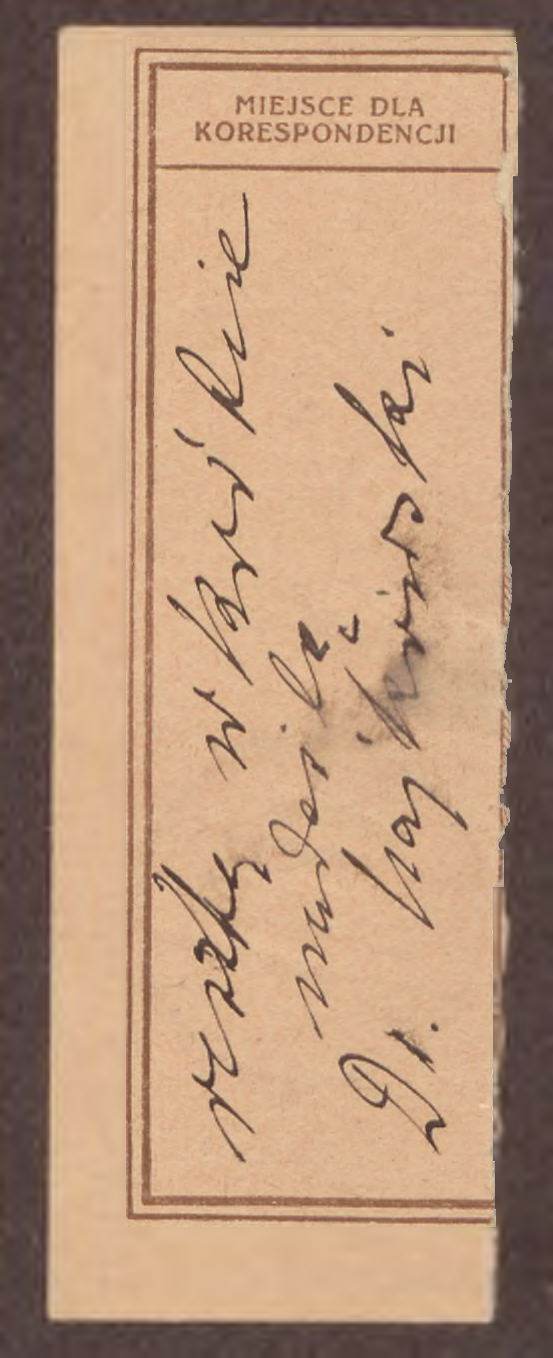 MIEJSCE DLA
KORESPONDENCJI
resztę w krótkie
nadeślę
Dr.